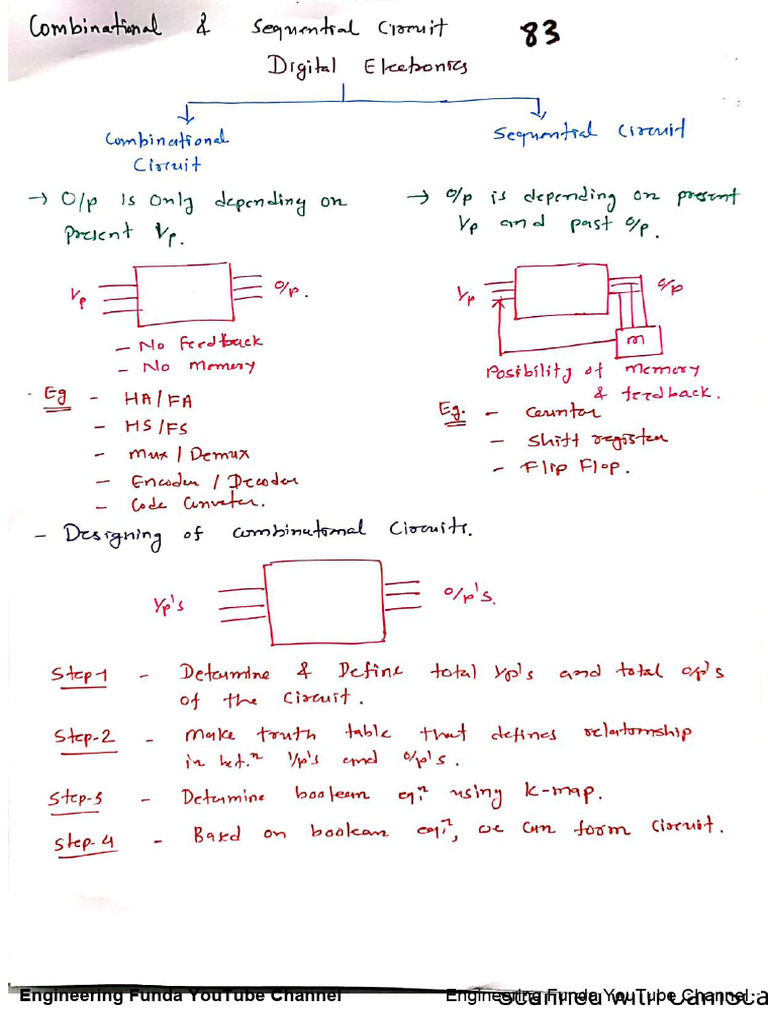 Combinational & Sequential Circuit
83
Digital Electronics
Combinational
Circuit
Sequential Circuit
→ O/p is only depending on
present I/p.
→ O/p is depending on present
I/p and past o/p.
I/p
O/p.
I/p
O/p
m
- No Feedback
- No Memory
Posibility of memory
& feedback.
Eg - HA/FA
- HS/FS
- Mux / Demux
- Encoder / Decoder
- Code Conveter.
Eg. - Counter
- Shift register
- Flip Flop.
- Designing of combinational Circuits.
I/p's
O/p's.
Step-1 - Determine & Define total I/p's and total o/p's
of the circuit.
Step-2 - Make truth table that defines relationship
in bet.n I/p's and O/p's.
Step-3 - Determine boolean eqn using K-map.
Step-4 - Based on boolean eqn, we can form circuit.
Engineering Funda YouTube Channel
Engineering Funda YouTube Channel
Scanned with CamSca